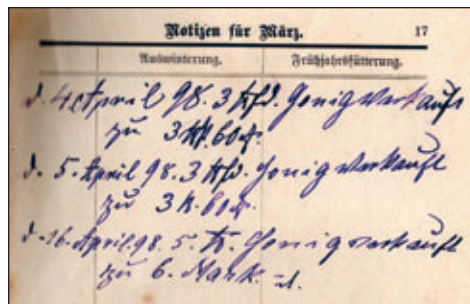 Notizen für März. 17
Auswinterung. Frühjahrsfütterung.
d. 4 April 98. 3 Pfd. Honig verkauft
zu 3 M. 60 d.
d. 5. April 98. 3 Pfd. Honig verkauft
zu 3 M. 60 d.
d. 16. April 98. 5. Honig verkauft
zu 6. Mark.